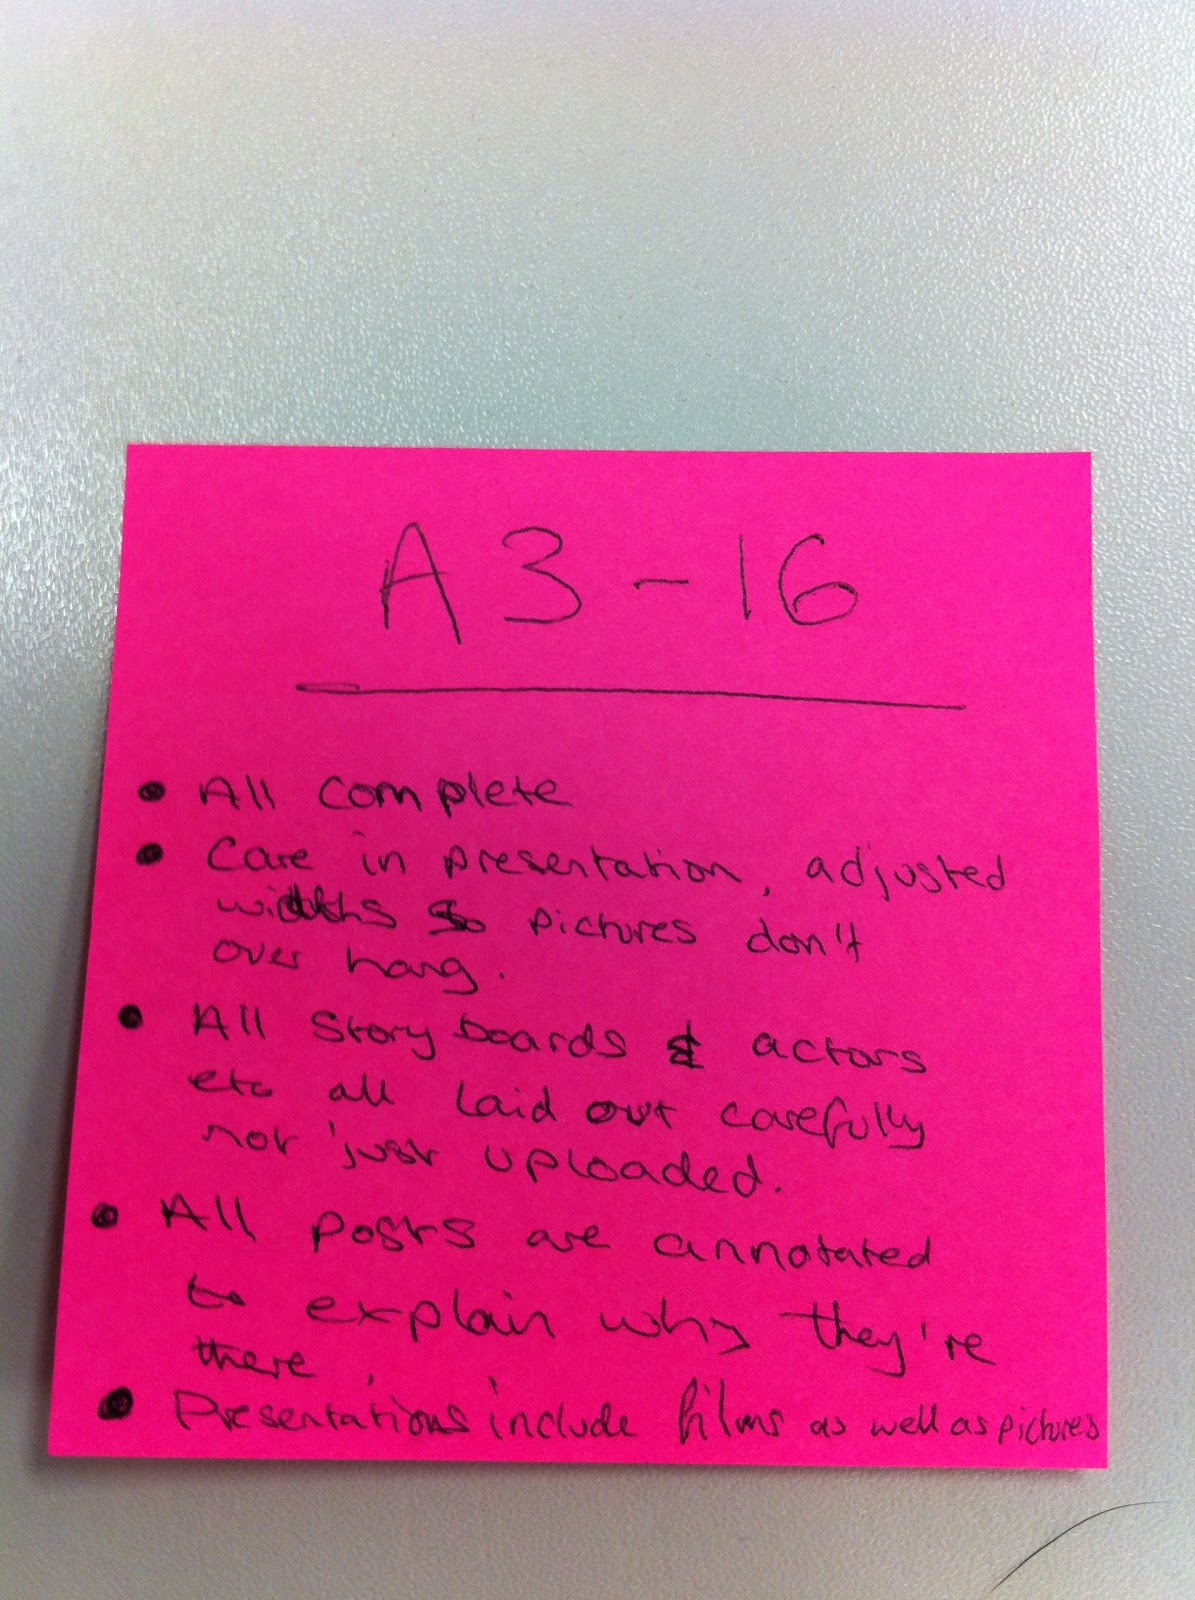 A3-16
• All complete
• Care in presentation, adjusted
widths so pictures don't
over hang.
• All Story boards & actors
etc all laid out carefully
not just uploaded.
• All posts are annotated
to explain why they're
there.
• Presentations include films as well as pictures